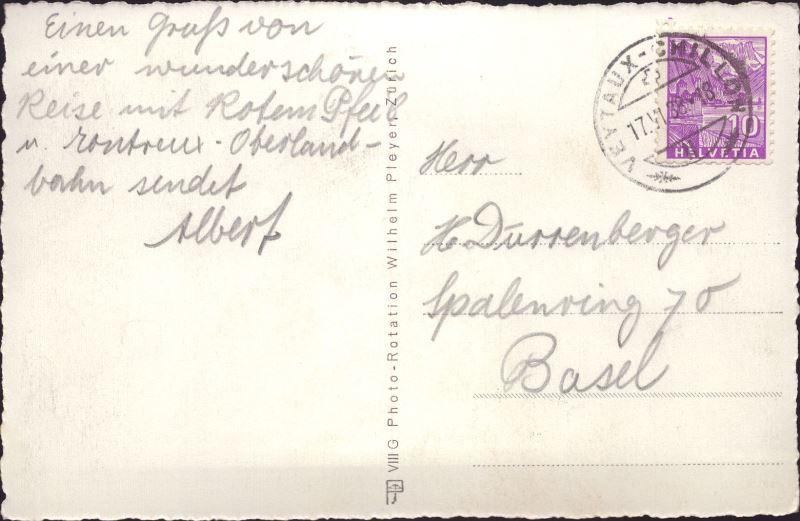 Einen Gruß von
einer wunderschönen
Reise mit Rotem Pfeil
u. Montreux-Oberland-
bahn sendet
Albert
VIII G Photo-Rotation Wilhelm Pleyer, Zürich
VEYTAUX-CHILLON
17.VI.36-18
10
HELVETIA
Herr
H. Dürrenberger
Spalenring 70
Basel